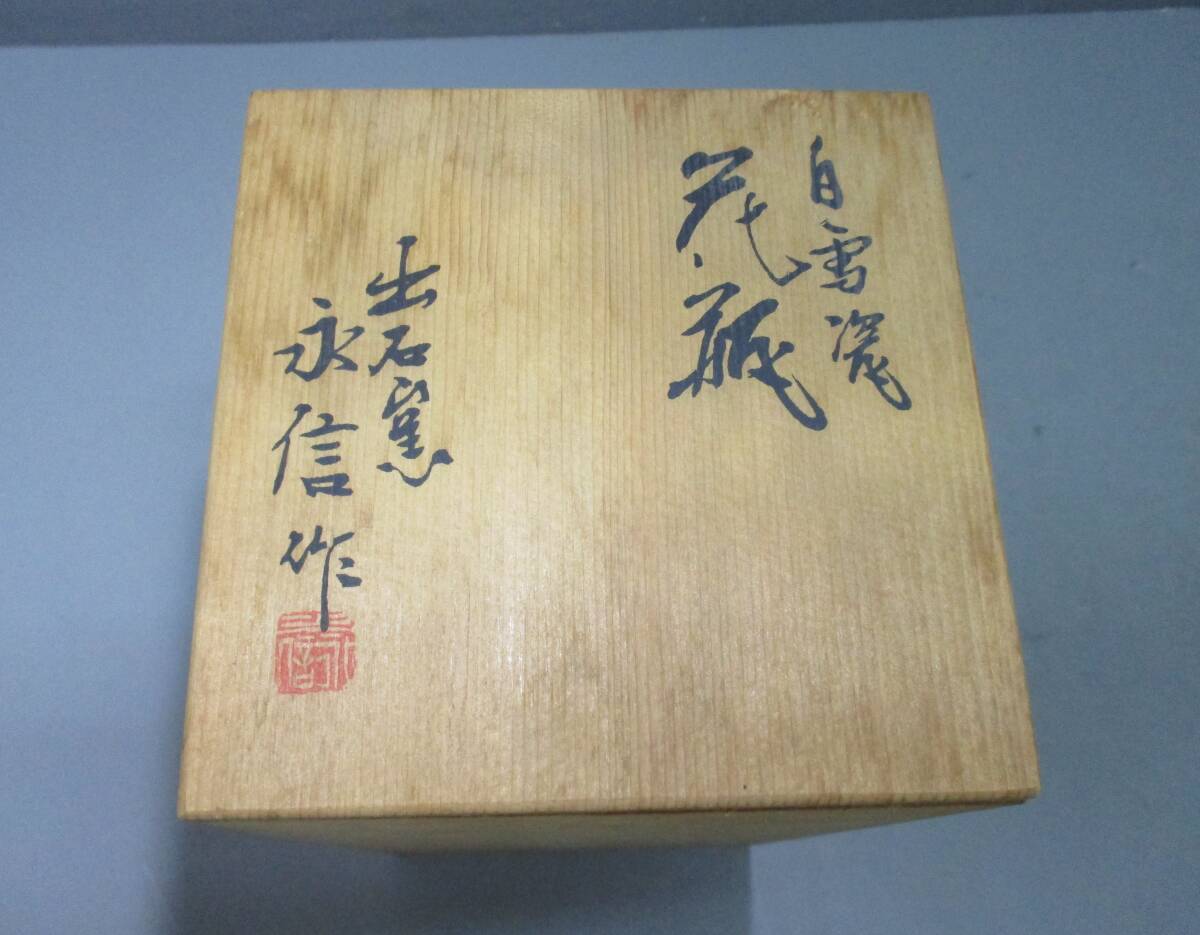 白雪瓷
花瓶
出石窯
永信作